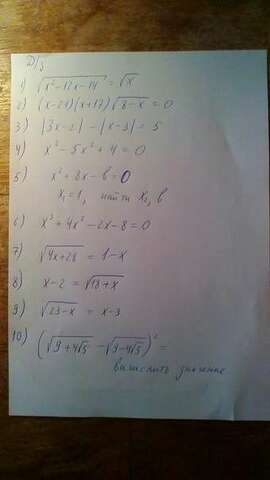 Д/з
1) √(x²-12x-14) = √x
2) (x-21)(x+17)√(8-x) = 0
3) |3x-2| - |x-3| = 5
4) x⁴ - 5x² + 4 = 0
5) x² + 8x - в = 0
x₁ = 1, найти x₂, в
6) x³ + 4x² - 2x - 8 = 0
7) √(4x+28) = 1-x
8) x-2 = √(18+x)
9) √(23-x) = x-3
10) (√(9+4√5) - √(9-4√5))² =
вычислить значение